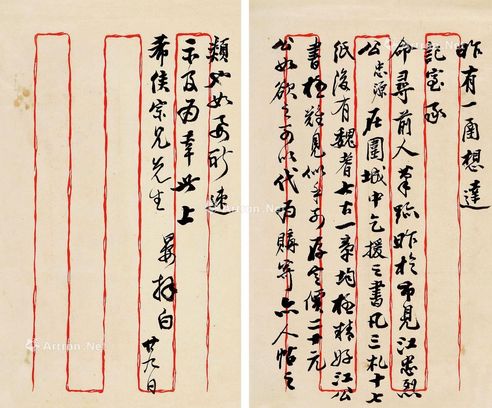 昨有一函想達
記室承
命尋前人筆跡昨於市見江忠烈
公忠源在圍城中乞援之書凡三札十七
紙後有魏耆士古一章均極精好江公
書極難見似
存定價二十元
公如欲之可以代為購寄亦人帖之
類也如要祈速
示及為幸此上
希侯宗兄先生
晏拜白
廿九日
Artron.Net
Artron.Net